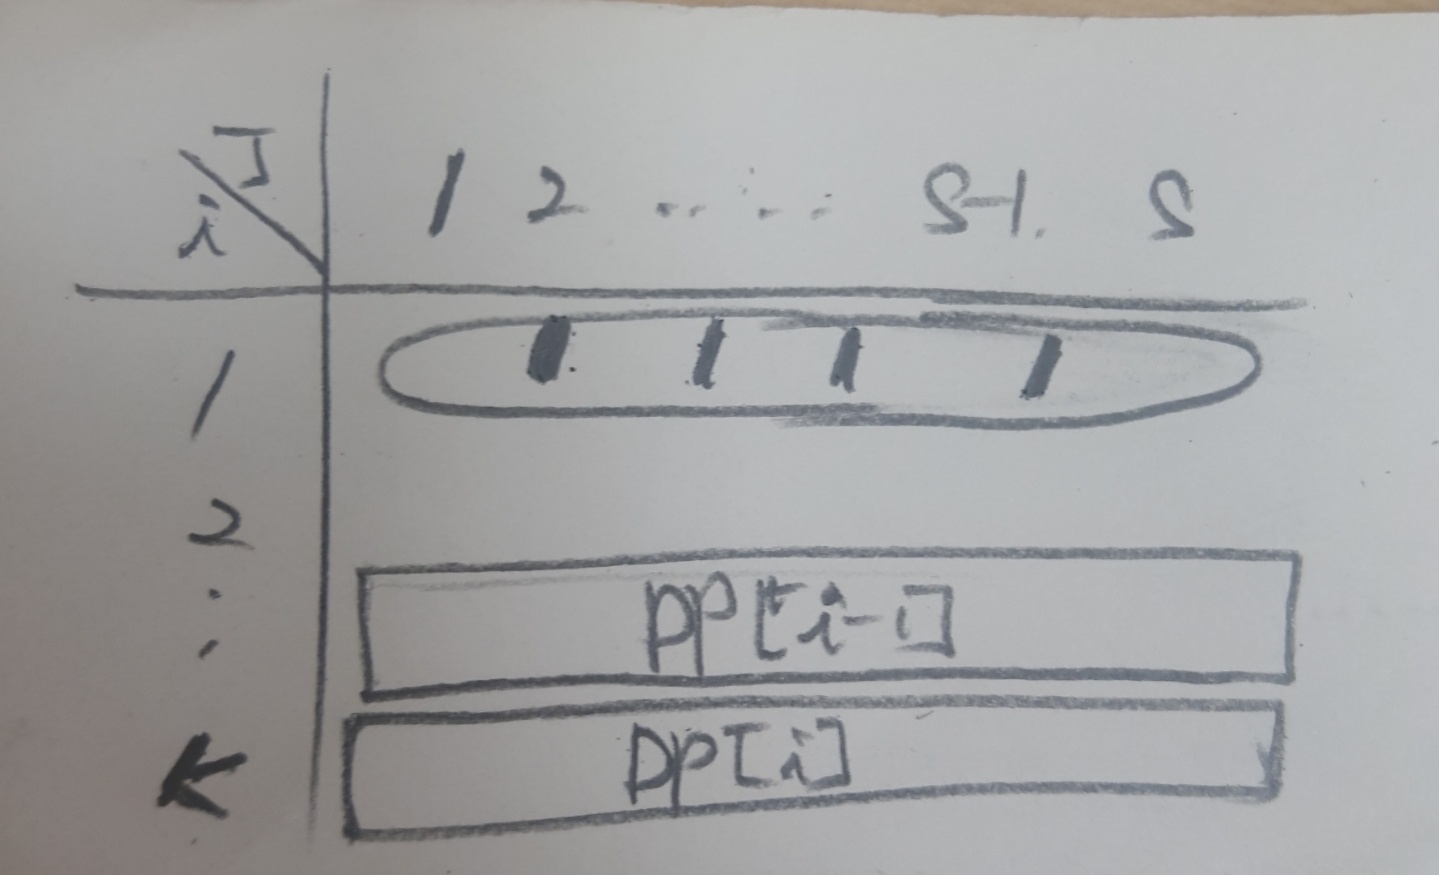 J
i
1 2 ..... S-1. S
1 1 1 1 1
2
:
DP[i-1]
K DP[i]